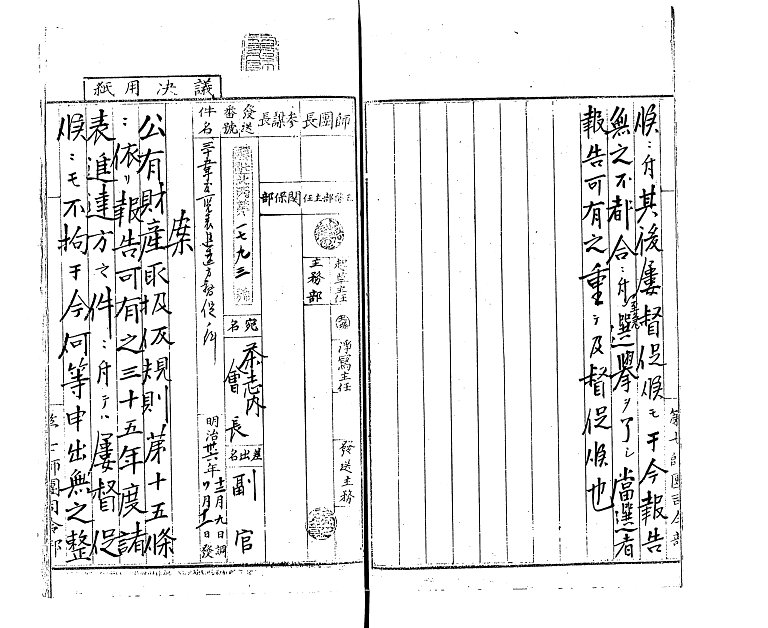 決議用紙
師團長
參謀長
發送番號
一七九三
號
件名
三十五年度諸表進達方督促ノ件
主務部主任
関係部
起草主任
主務部
淨寫主任
發送主務
宛名
茶志内
會長
差出名
副官
明治卅六年十二月九日調
十二月十一日發
案
公有財産取扱仮規則第十五條
ニ依リ報告可有之三十五年度諸
表進達方之件ニ付テハ屢督促
候ニモ不拘于今何等申出無之整
第七師團司令部
候ニ付其後屢督促候モ于今報告
無之不都合ニ付至急選擧ヲ了シ當選者
報告可有之重テ及督促候也
第七師團司令部